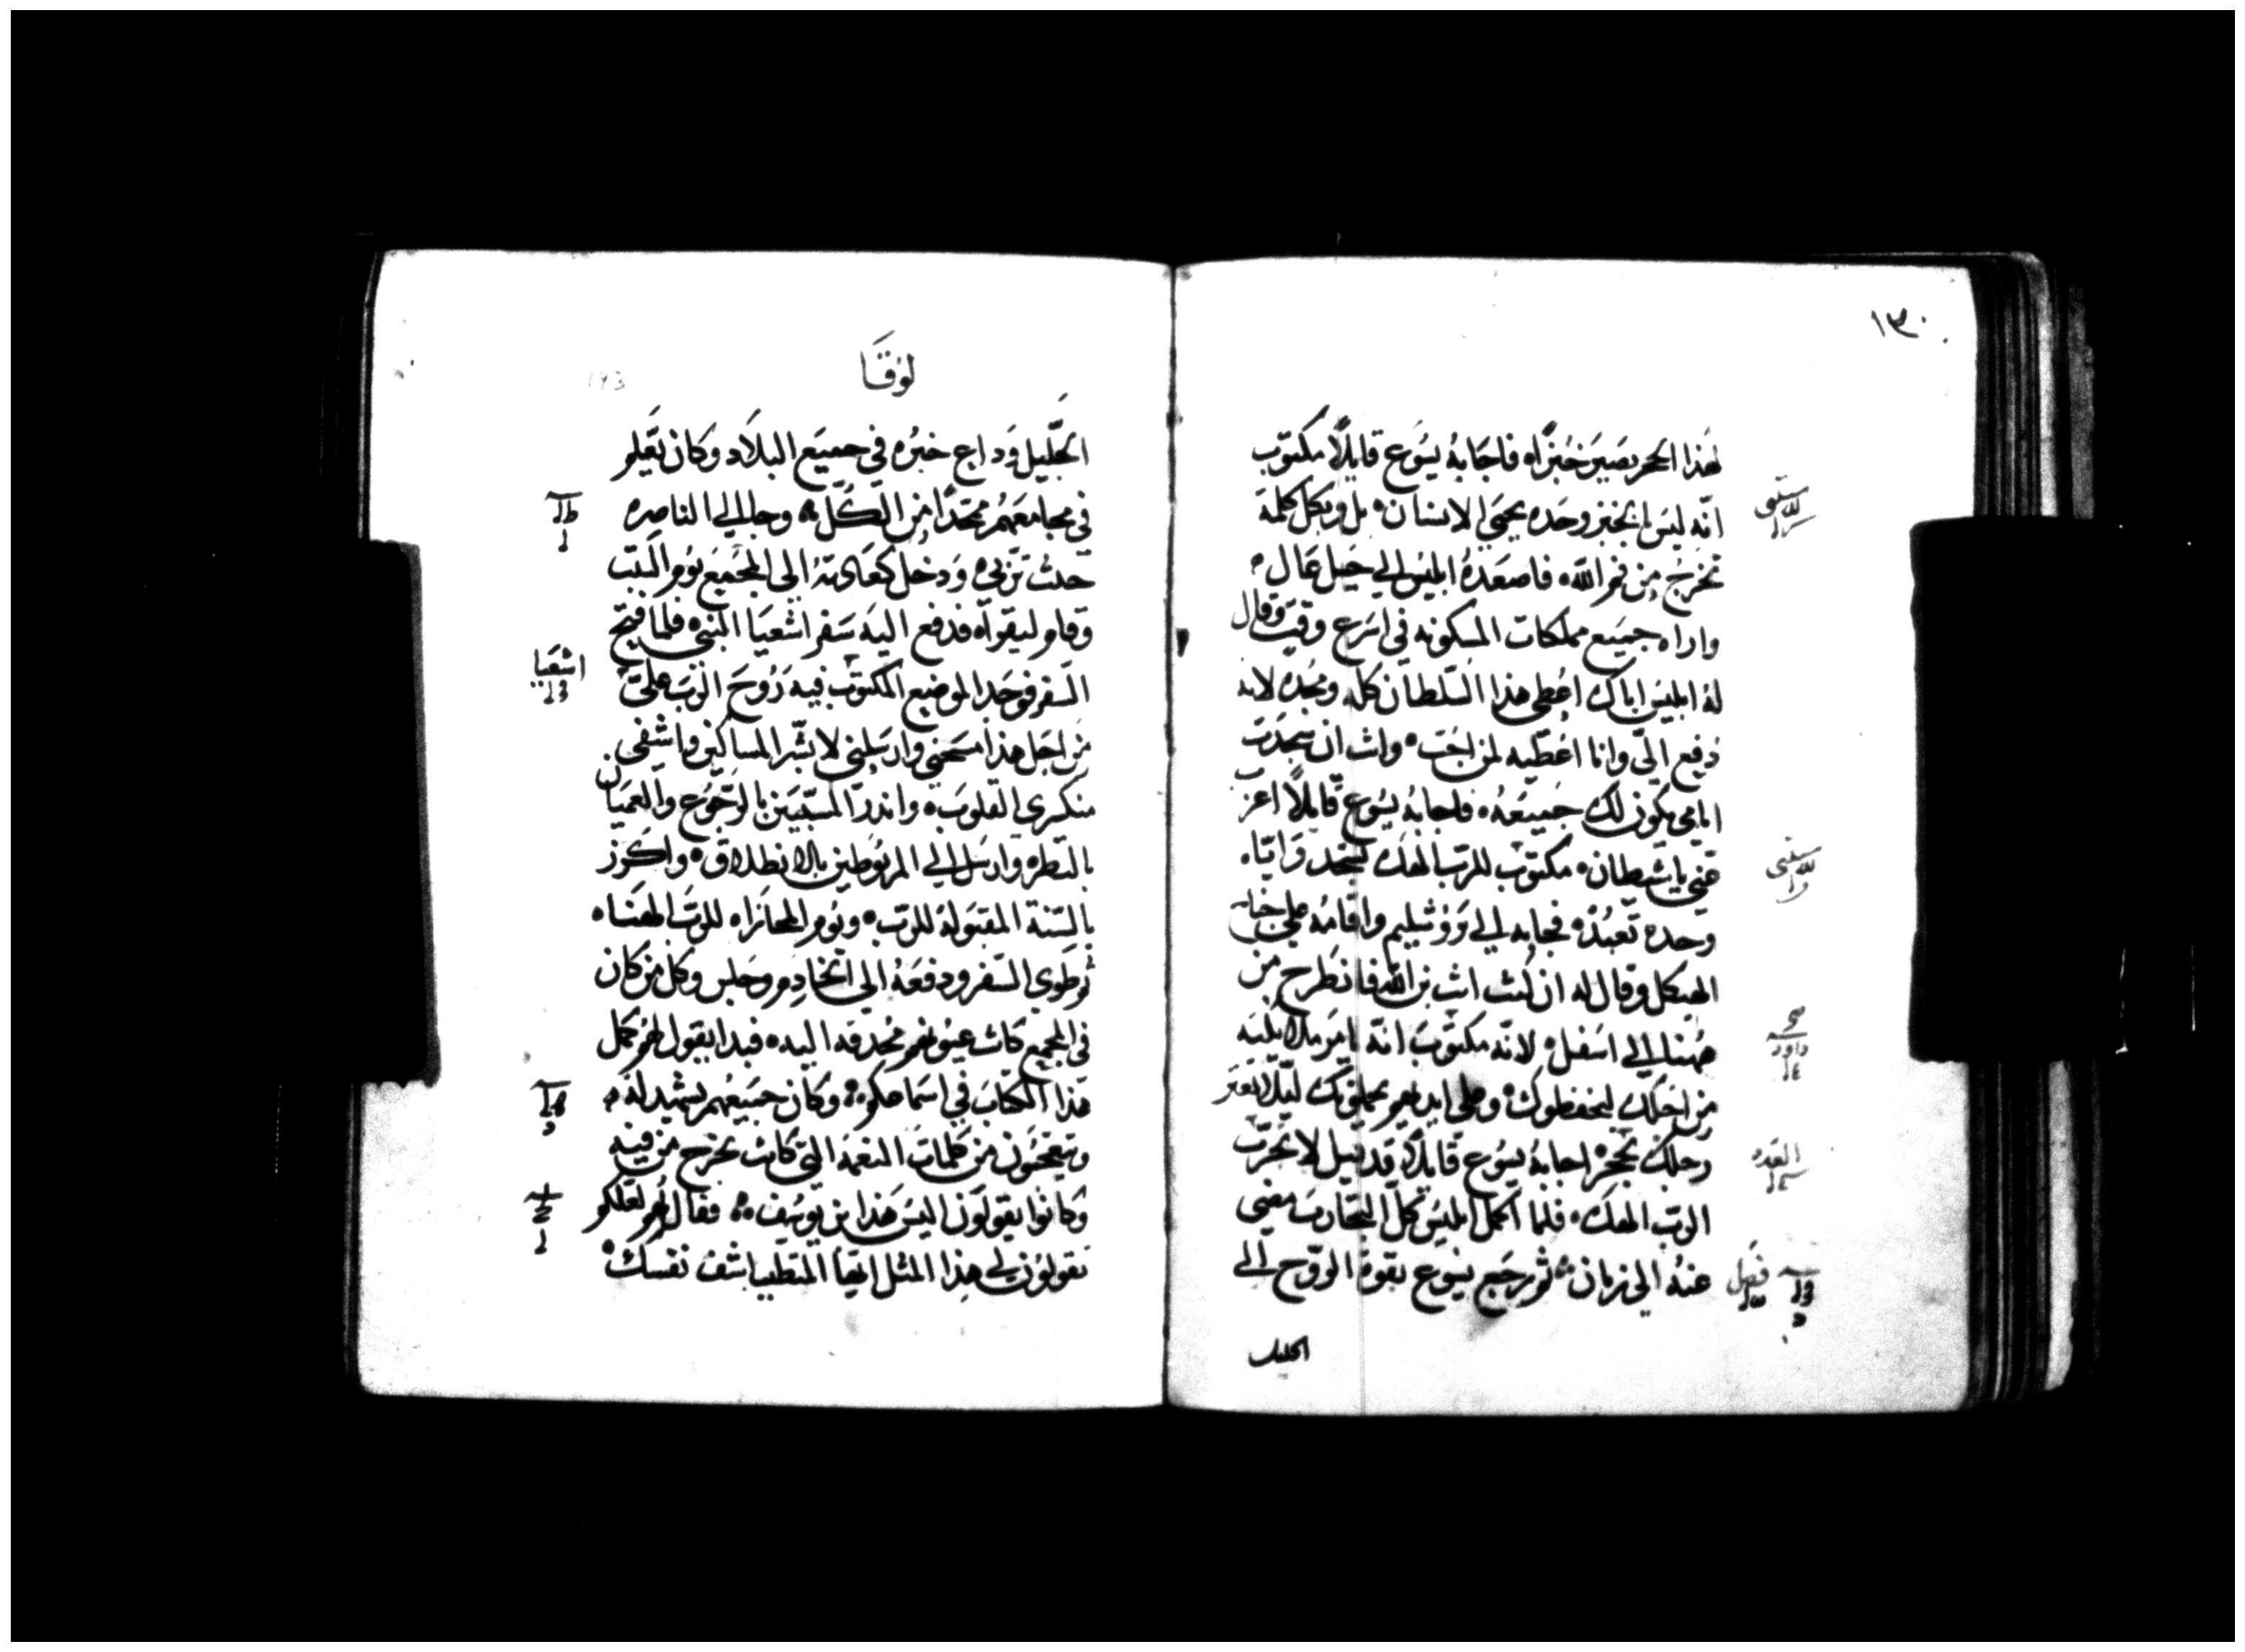 ١٣٠
لهذا الحجر يصير خبزًا ه فاجابهُ يسَوع قايلاً مكتوب
انّه ليسَ بالخبز وحَده يحيَي الانسَان ه بل وبكل كلمة
تخرجُ مِن فم الله ه فاصعَدهُ ابليسُ الي جَبل عَال ه
واراه جميَع مملكات المسكونه في اسَرع وقت وقال
لهُ ابليسَ اياك اعُطي هذا السّلطان كله ومجده لانه
دُفِع اليّ وانا اعُطيه لمن احُب ه وانت ان سجدَت
امامي يكون لك جميعَهُ ه فاجابهُ يسُوع قايلاً اعزب
عنيّ يا شيطان ه مكتوب للرب الهك تسجد وَاياه
وحده تعبُد ه فجابه الي يَرُوشليم واقامهُ علي جناح
الهيكل وقال له ان كُنت انت بن الله فانطرح من
هُهنا الي اسَفل ه لانه مكتوبَ انهّ يامر ملايكته
من اجَلك ليحفظوك ه وعلي ايديهم يحملونك ليَلا تعثر
رجلك بحجر ه اجابهُ يسُوع قايلاً ه قد قيل لا تجرّب
الرب الهك ه فلما اكمل ابليسُ كلّ التجاربَ مضي
عنهُ الي زمان ه ثم رجَع يسَوع بقوة الروّح الي
الجليل
سفر الاستثنى
داود
العدد
فصل
لوُقَا
الجَليل وَداع خبرُه في جميَع البلاد وكان يعَلم
في مجامعَهم ممجّدًا مِن الكُل ه وجا الي الناصره
حيث تربّي ه وَدخل كعَادتهُ الي المجمع يوُم السَبت
وقام ليقرأ ه فدفع اليَه سَفر اشعيَا النبيّ ه فلما فتح
السّفر فوجَد الموضع المكتوب فيه رَُوحَ الربَ عليّ
من اجَل هذا مسَحني وارسَلني لابشّر المساكين واشفي
منكسَري القلوب ه واندر المسَبيّين بالرجُوع والعميَان
بالنظر ه وارسَل الي المربُوطين بالانطلاق ه واكرز
بالسّنة المقبَولة للرب ه ويوُم المجازاه للربّ الهنا ه
ثم طوَي السّفر ودفعَهُ الي الخادِم وجلس وكل من كان
في المجمع كانت عيُونهم محُدقه اليه ه فبدا يقول لهُم كمل
هَذا الكتابَ في اسَماعكم ه وكان جميَعُهم يشهد له ه
ويتعجبَون من كلماتَ النعمه التي كانت تخرج من فيه
وكانُوا يقولَون اليسَ هَذا بن يوسُف ه فقال لهُم لعَلكم
تقولوُن لي هذا المثل ايهّا المتطبب اشف نفسك ه
اشعيا